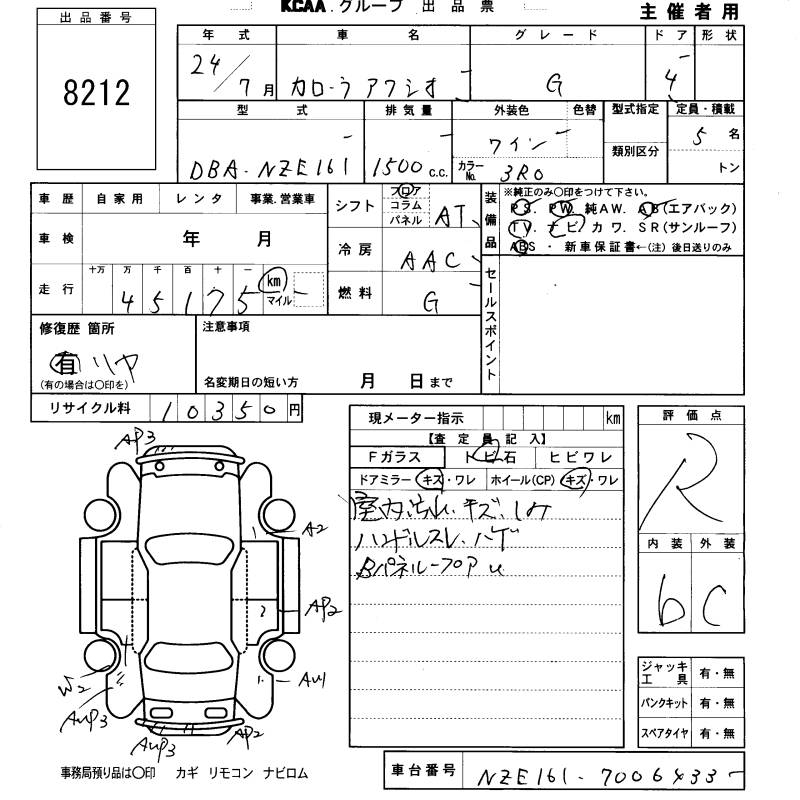 KCAA グループ 出品票
主催者用
出品番号
8212
年式 車名 グレード ドア 形状
24/7月 カローラ アクシオ G 4
型式 排気量 外装色 色替 型式指定 定員・積載
DBA-NZE161 1500 c.c. ワイン カラーNo. 3R0 類別区分 5名
トン
車歴 自家用 レンタ 事業.営業車
車検 年 月
走行 十万 万 千 百 十 一
45175 km マイル
シフト フロア コラム パネル AT
冷房 AAC
燃料 G
装備品
※純正のみ○印をつけて下さい。
PS. PW. 純AW. AB(エアバック)
TV. ナビ カワ. SR(サンルーフ)
ABS ・ 新車保証書←(注) 後日送りのみ
セールスポイント
修復歴 箇所
有 リヤ
(有の場合は○印を)
注意事項
名変期日の短い方 月 日まで
リサイクル料 10350 円
現メーター指示 km
【査定員記入】
Fガラス トビ石 ヒビワレ
ドアミラー キズ・ワレ ホイール(CP) キズ・ワレ
室内汚れ.キズ.シミ
ハンドルスレ.ハゲ
BパネルーフロアU
評価点
R
内装 外装
b C
ジャッキ工具 有・無
パンクキット 有・無
スペアタイヤ 有・無
AP3
A2
AP2
AU1
W2
AUP3
AUP3
AP2
事務局預り品は○印 カギ リモコン ナビロム
車台番号 NZE161-7006433